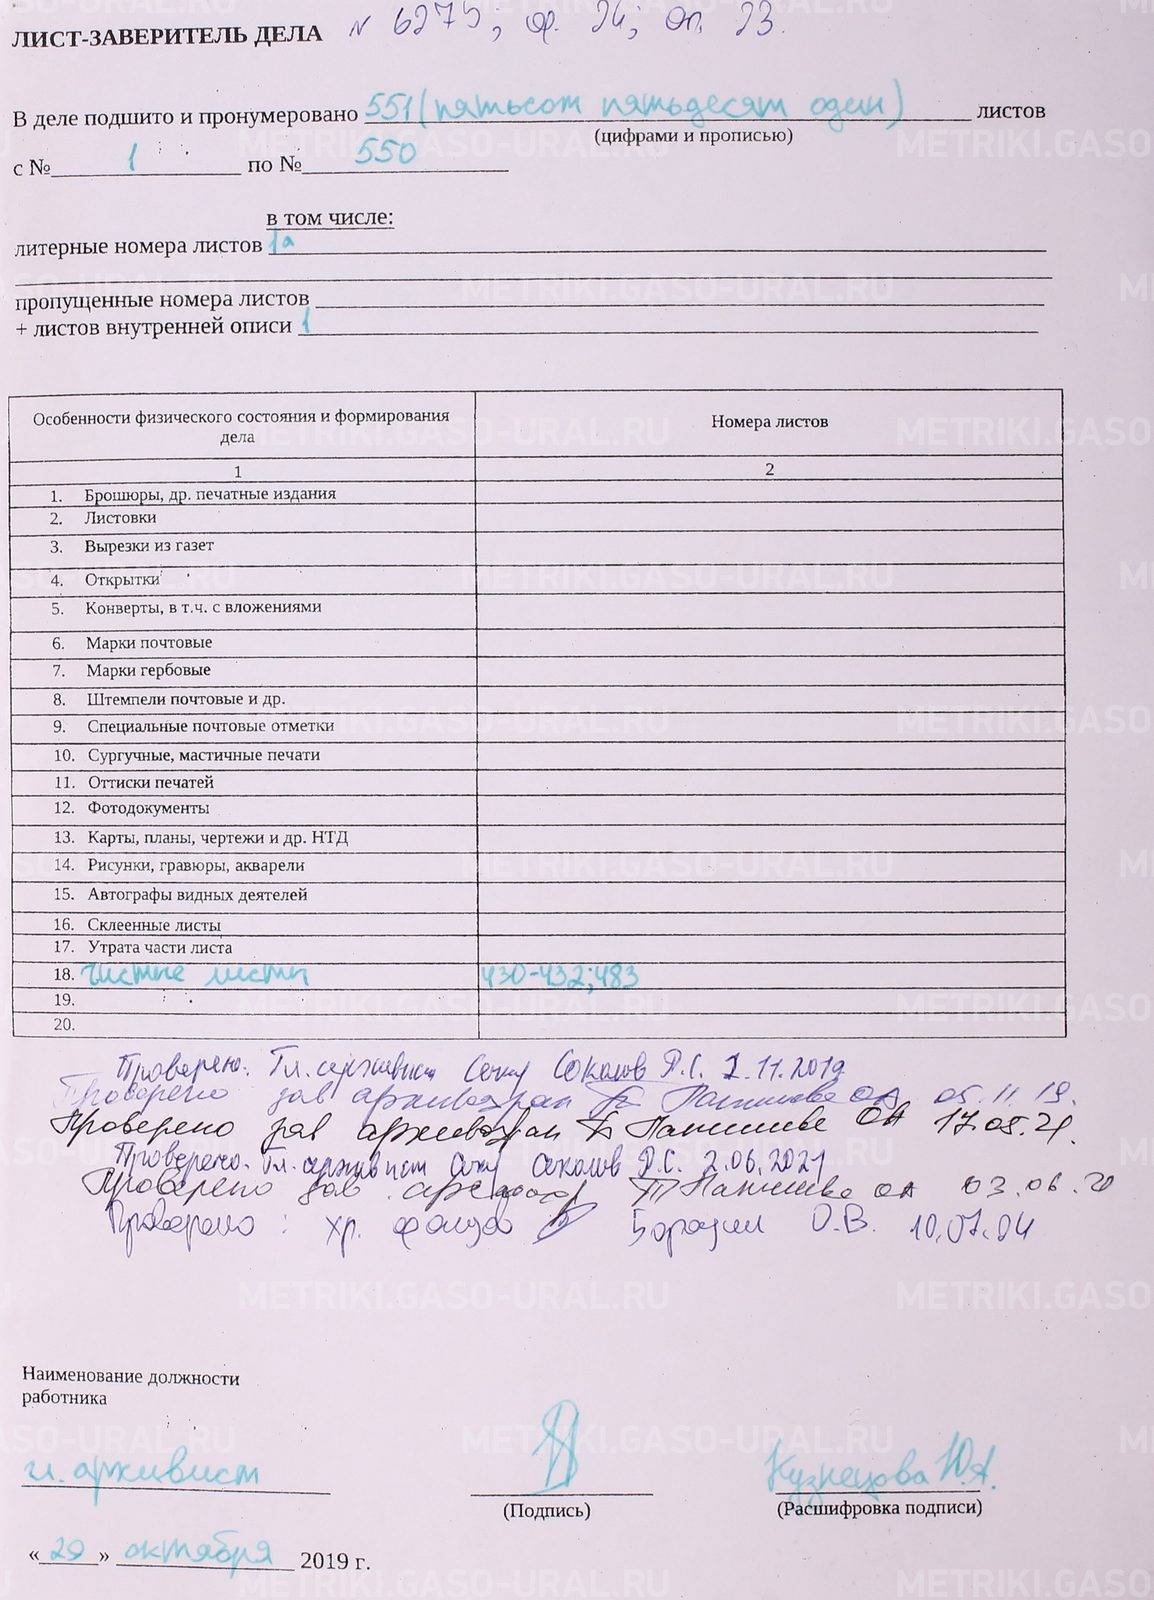 ЛИСТ-ЗАВЕРИТЕЛЬ ДЕЛА N 6275; ф. 24; оп. 23.
В деле подшито и пронумеровано 551 (пятьсот пятьдесят один) листов
(цифрами и прописью)
с № 1 по № 550
в том числе:
литерные номера листов 1а
пропущенные номера листов
+ листов внутренней описи 1
Особенности физического состояния и формирования дела Номера листов
1 2
1. Брошюры, др. печатные издания
2. Листовки
3. Вырезки из газет
4. Открытки
5. Конверты, в т.ч. с вложениями
6. Марки почтовые
7. Марки гербовые
8. Штемпели почтовые и др.
9. Специальные почтовые отметки
10. Сургучные, мастичные печати
11. Оттиски печатей
12. Фотодокументы
13. Карты, планы, чертежи и др. НТД
14. Рисунки, гравюры, акварели
15. Автографы видных деятелей
16. Склеенные листы
17. Утрата части листа
18. чистые листы 430-432; 483
19.
20.
Проверено: Гл. архивист Соколов Д.С. 1.11.2019
Проверено зав архивохран ОА 05.11.19.
Проверено зав архивохран ОА 17.05.21.
Проверено. Гл. архивист Соколов Д.С. 2.06.2021
Проверено зав. ОА 03.06.20
Проверено: хр. фондов О.В. 10.07.24
Наименование должности
работника
гл. архивист Кузнецова Ю.А.
(Подпись) (Расшифровка подписи)
« 29 » октября 2019 г.
METRIKI.GASO-URAL.RU